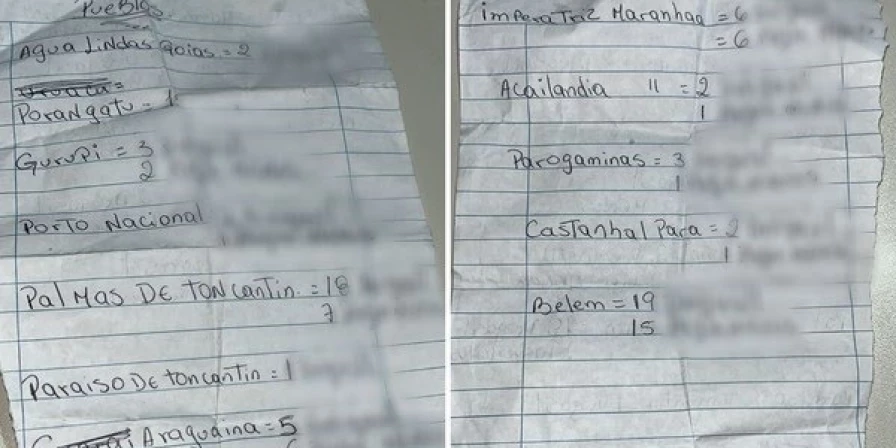 Pueblo
Agua Lindas Goias = 2
Porangatu = 1
Gurupi = 3
2
Porto Nacional
Palmas De Toncantin. = 18
7
Paraiso De toncantin = 1
Araguaina = 5
imperatriz Maranhaa = 6
= 6
Acailandia " = 2
1
Parogaminas = 3
1
Castanhal Para = 2
1
Belem = 19
15